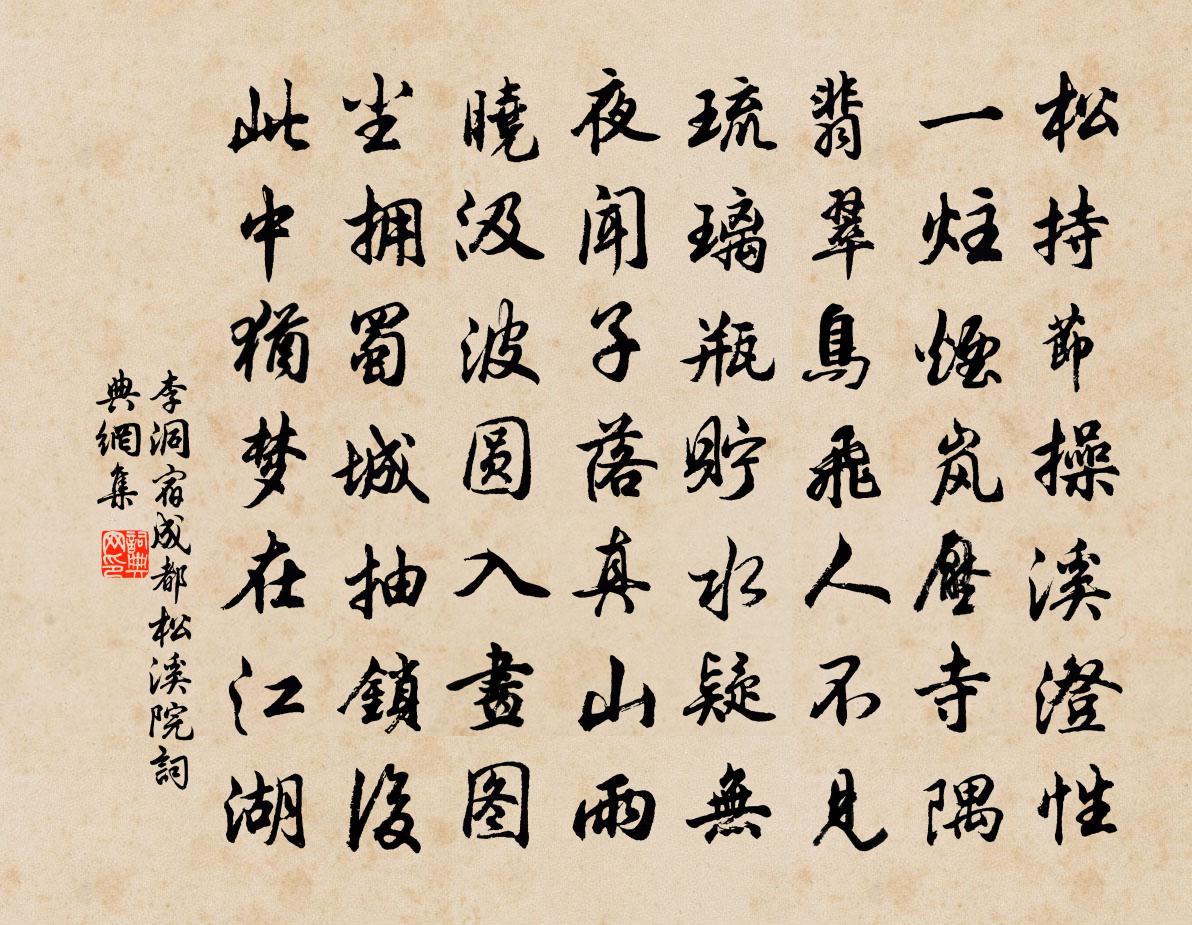 松持节操溪澄性
一炷煙岚壓寺隅
翡翠鳥飛人不見
琉璃瓶貯水疑無
夜闻子落真山雨
曉汲波圆入畫图
尘拥蜀城抽鎖後
此中犹梦在江湖
李洞宿成都松溪院詞
典網集
詞典网印